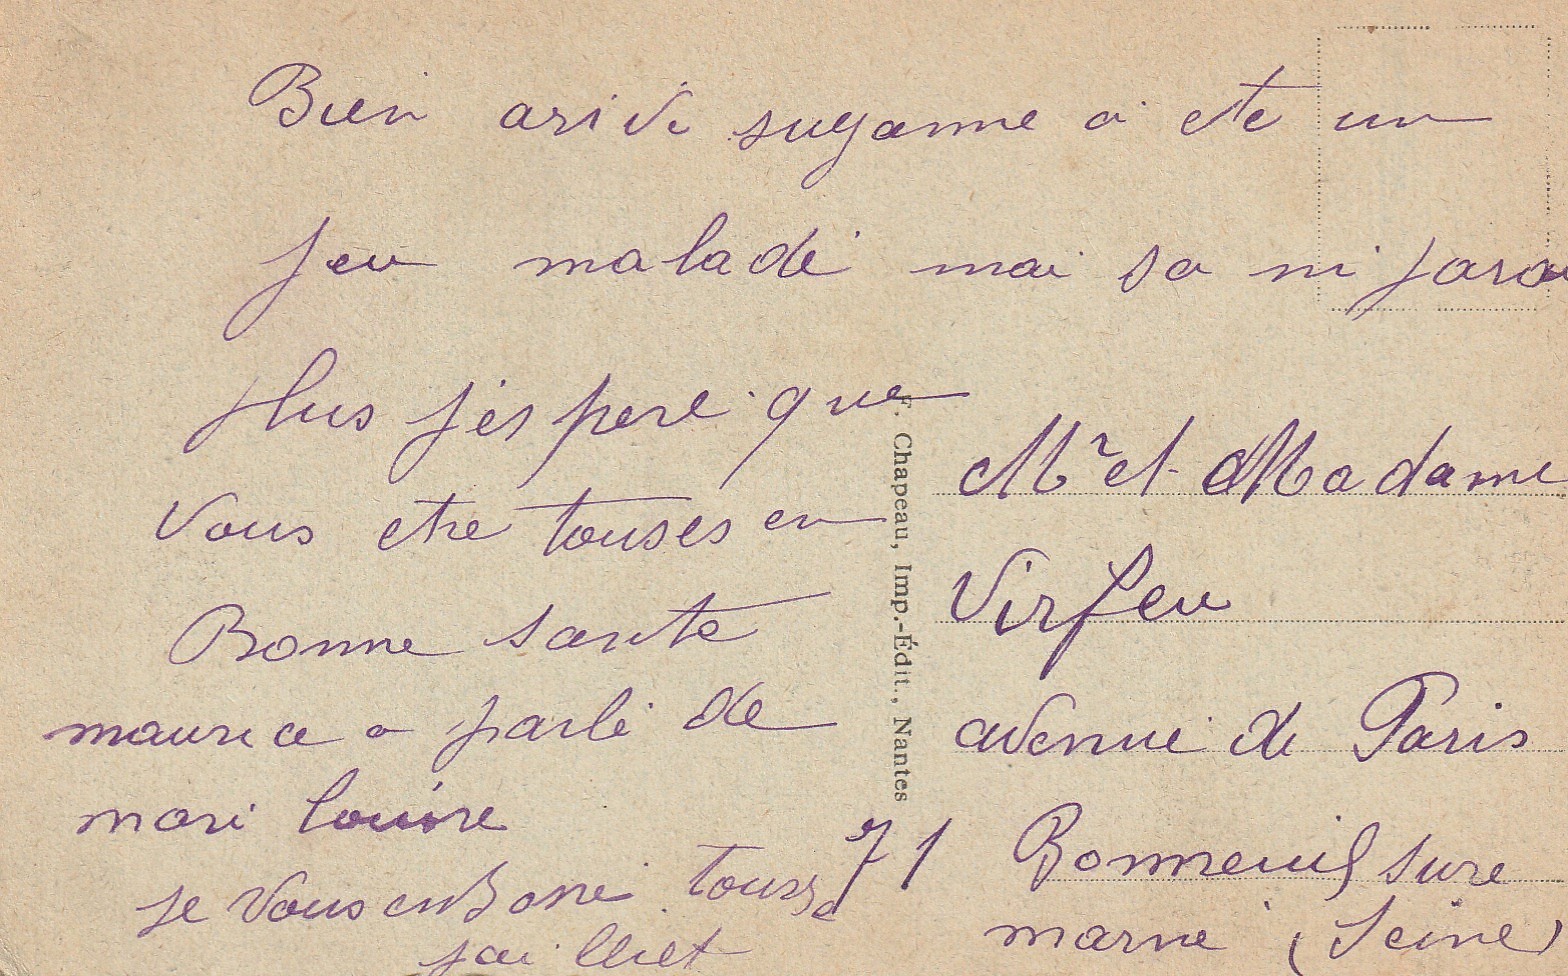 Bien arivé suzanne a ete un
peu malade mai sa ni parai
plus j'espere que
vous etre touses en
Bonne sante
maurice a parlé de
mari louise
je vous enbrase touse
jailliet
F. Chapeau, Imp.-Édit., Nantes
Mr et Madame
Virfeu
avenue de Paris
71 Bonneuil sure
marne (Seine)